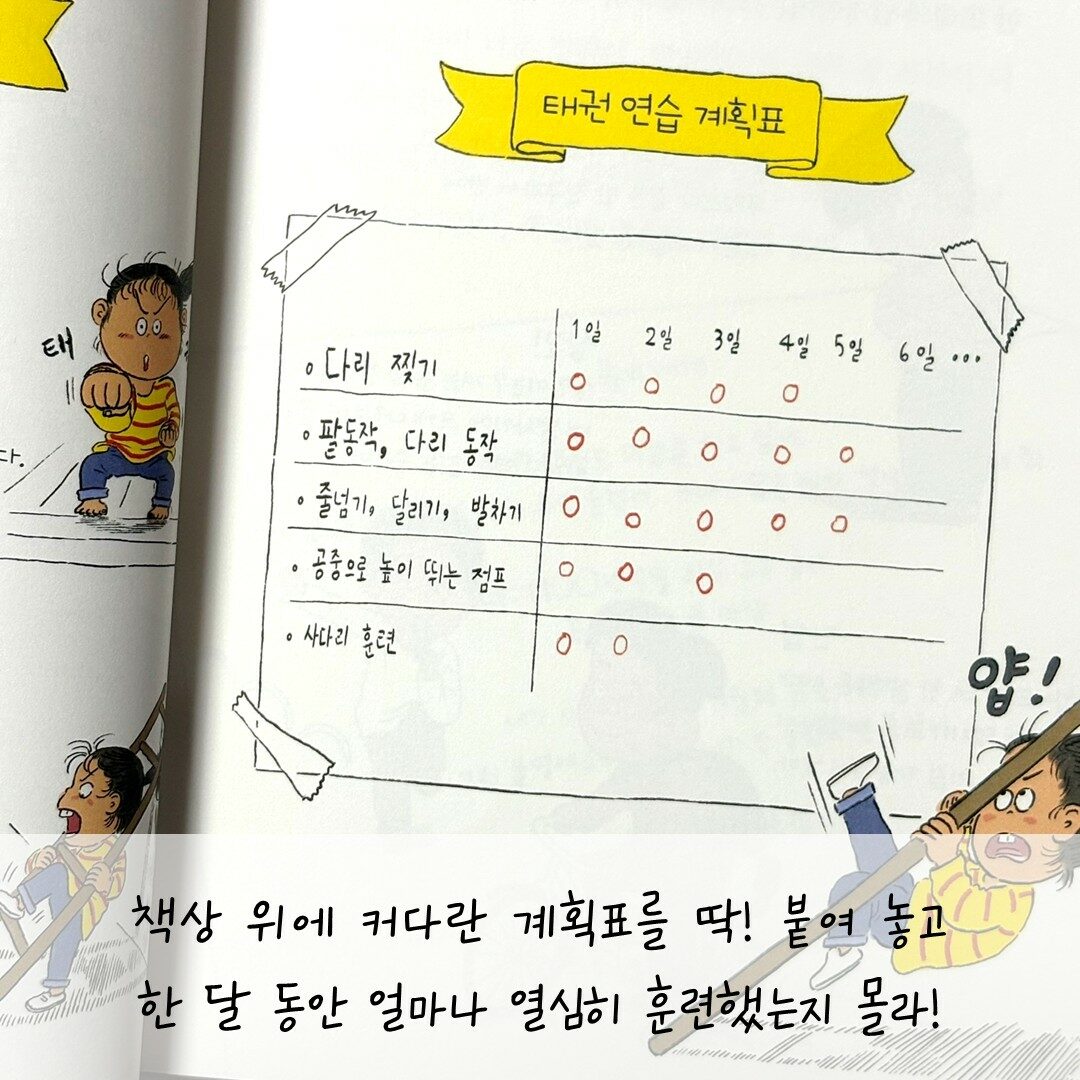 태권 연습 계획표
1일 2일 3일 4일 5일 6일 ...
• 다리 찢기
• 팔동작, 다리 동작
• 줄넘기, 달리기, 발차기
• 공중으로 높이 뛰는 점프
• 사다리 훈련
태
다.
얍!
책상 위에 커다란 계획표를 딱! 붙여 놓고
한 달 동안 얼마나 열심히 훈련했는지 몰라!